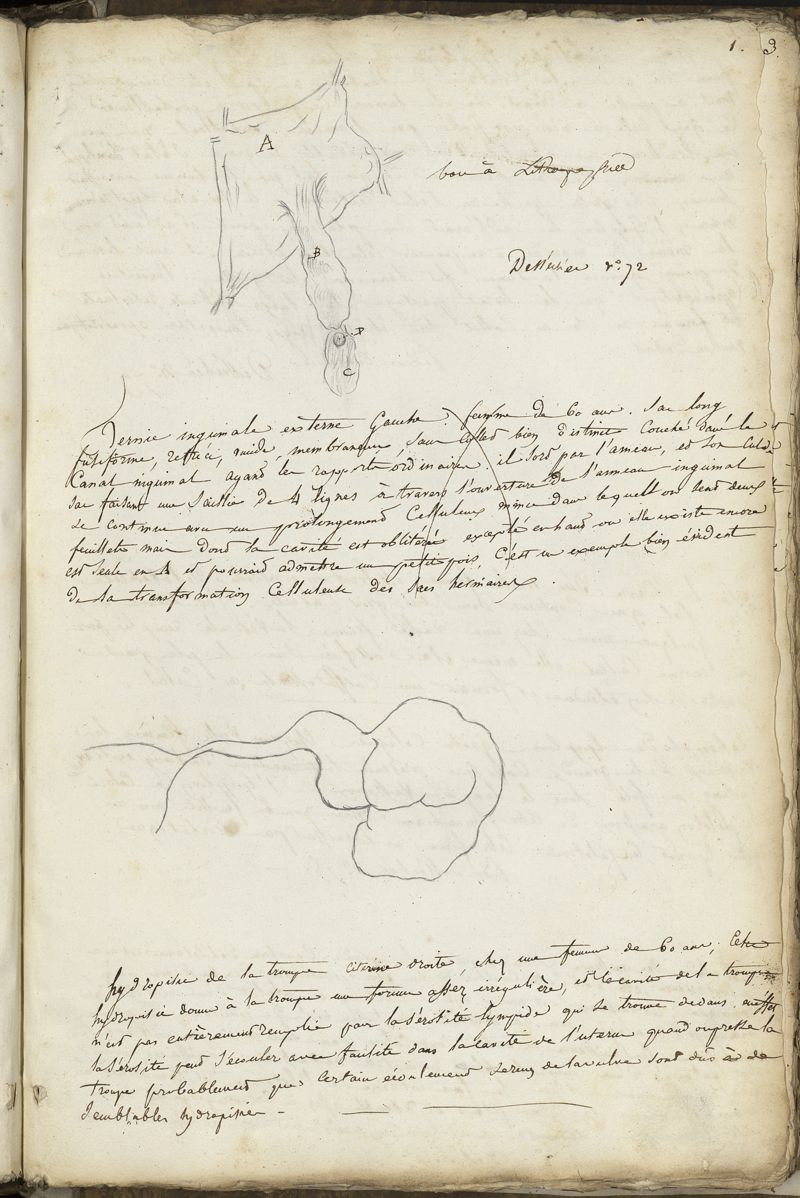 1. 3.
A
bon à
B
D
C
hernie inguinale externe gauche. femme de 60 ans. Sac long
fusiforme, rétréci, membraneux, sans collet bien distinct couché dans le
Canal inguinal ayant les rapports ordinaires. il sort par l'anneau, et son cul de
sac faisant une saillie de 4 lignes à travers l'ouverture de l'anneau inguinal
se continue avec un prolongement Celluleux mince dans lequel on sent deux
feuillets mais dont la cavité est oblitérée excepté en haut ou elle existe encore
est seule en A et pourrait admettre un petit pois, C'est un exemple bien évident
de la transformation Celluleuse des Sacs herniaires.
hydropisie de la trompe utérine droite, chez une femme de 60 ans, Cette
hydropisie donne à la trompe une forme assez irrégulière, et la cavité de la trompe
n'est pas entièrement remplie par la sérosité lympide qui se trouve dedans. en effet
la Sérosité peut s'écouler avec facilité dans la cavité de l'uterus quand on presse la
trompe probablement que certain écoulement séreux de la vulve sont dûs à de
Semblables hydropisies -